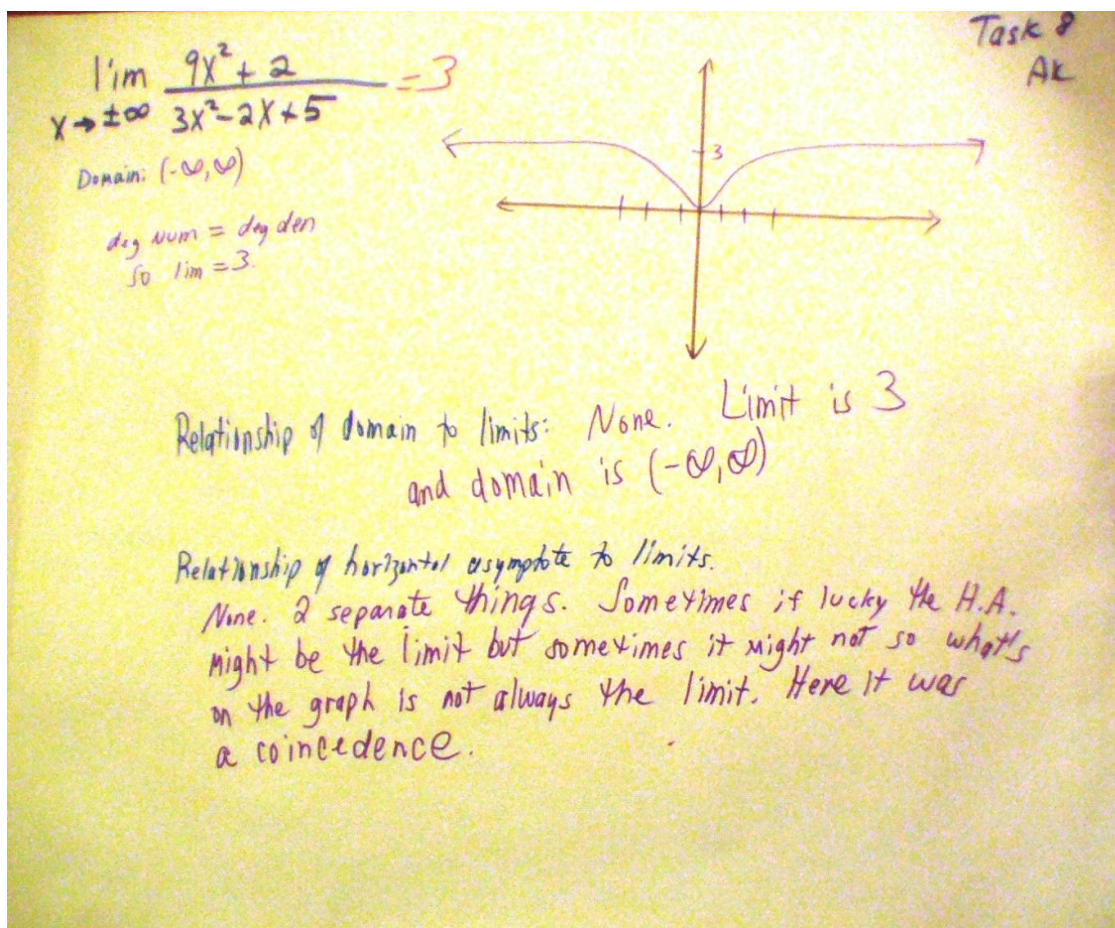 Task 8
AK
lim 9x²+2 / 3x²-2x+5 = 3
x→±∞
Domain: (-∞,∞)
deg Num = deg den
So lim = 3.
3
Relationship of domain to limits: None. Limit is 3
and domain is (-∞,∞)
Relationship of horizontal asymptote to limits.
None. 2 separate things. Sometimes if lucky the H.A.
Might be the limit but sometimes it might not so what's
on the graph is not always the limit. Here it was
a coincedence.